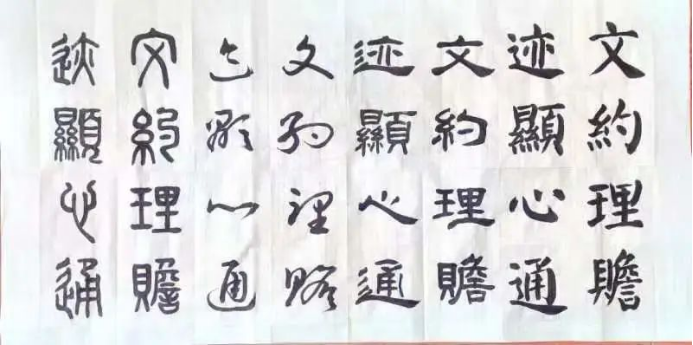 文約理贍
迹顯心通
文約理贍
迹顯心通
文約理贍
迹顯心通
文約理贍
迹顯心通